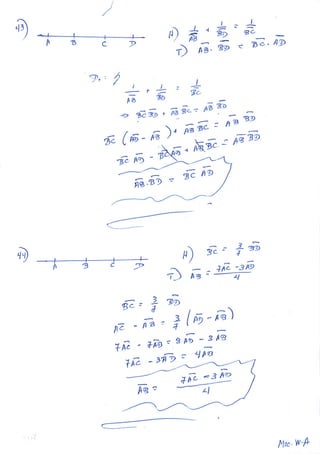 43)
A B C D
H) 1/AB + 1/BD = 1/BC
T) AB · BD = BC · AD
1/AB + 1/BD = 1/BC
⇒ BC BD + AB BC = AB BD
BC (AD - AB) + AB BC = AB BD
BC AD - BC AB + AB BC = AB BD
AB · BD = BC AD
44)
A B C D
H) BC = 3/7 BD
T) AB = (7AC - 3AD)/4
BC = 3/7 BD
AC - AB = 3/7 (AD - AB)
7AC - 7AB = 3AD - 3AB
7AC - 3AD = 4AB
AB = (7AC - 3AD)/4
Msc. W.A